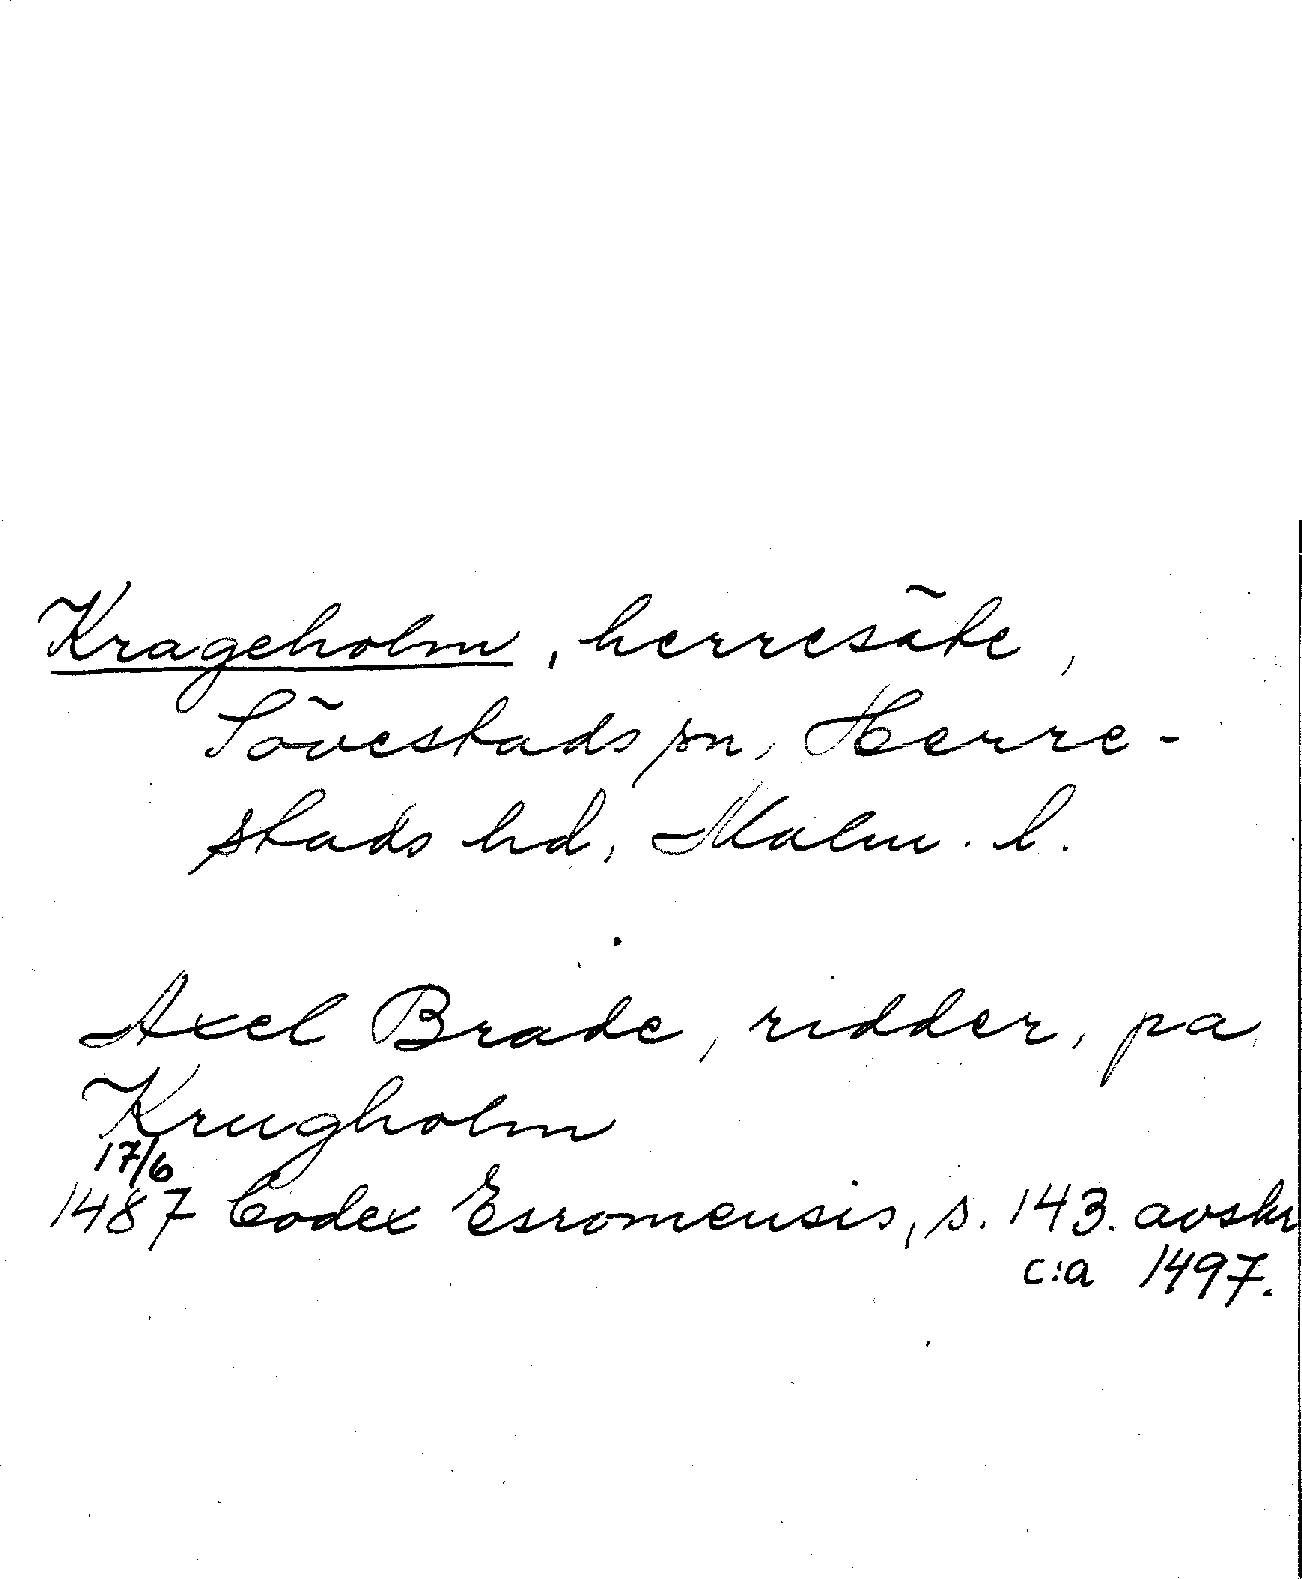 Krageholm, herresäte,
Sövestads sn, Herre-
stads hd, Malm. l.
Axel Brade, ridder, pa
Krugholm
17/6
1487 Codex Esromensis, s. 143. avskr
c:a 1497.